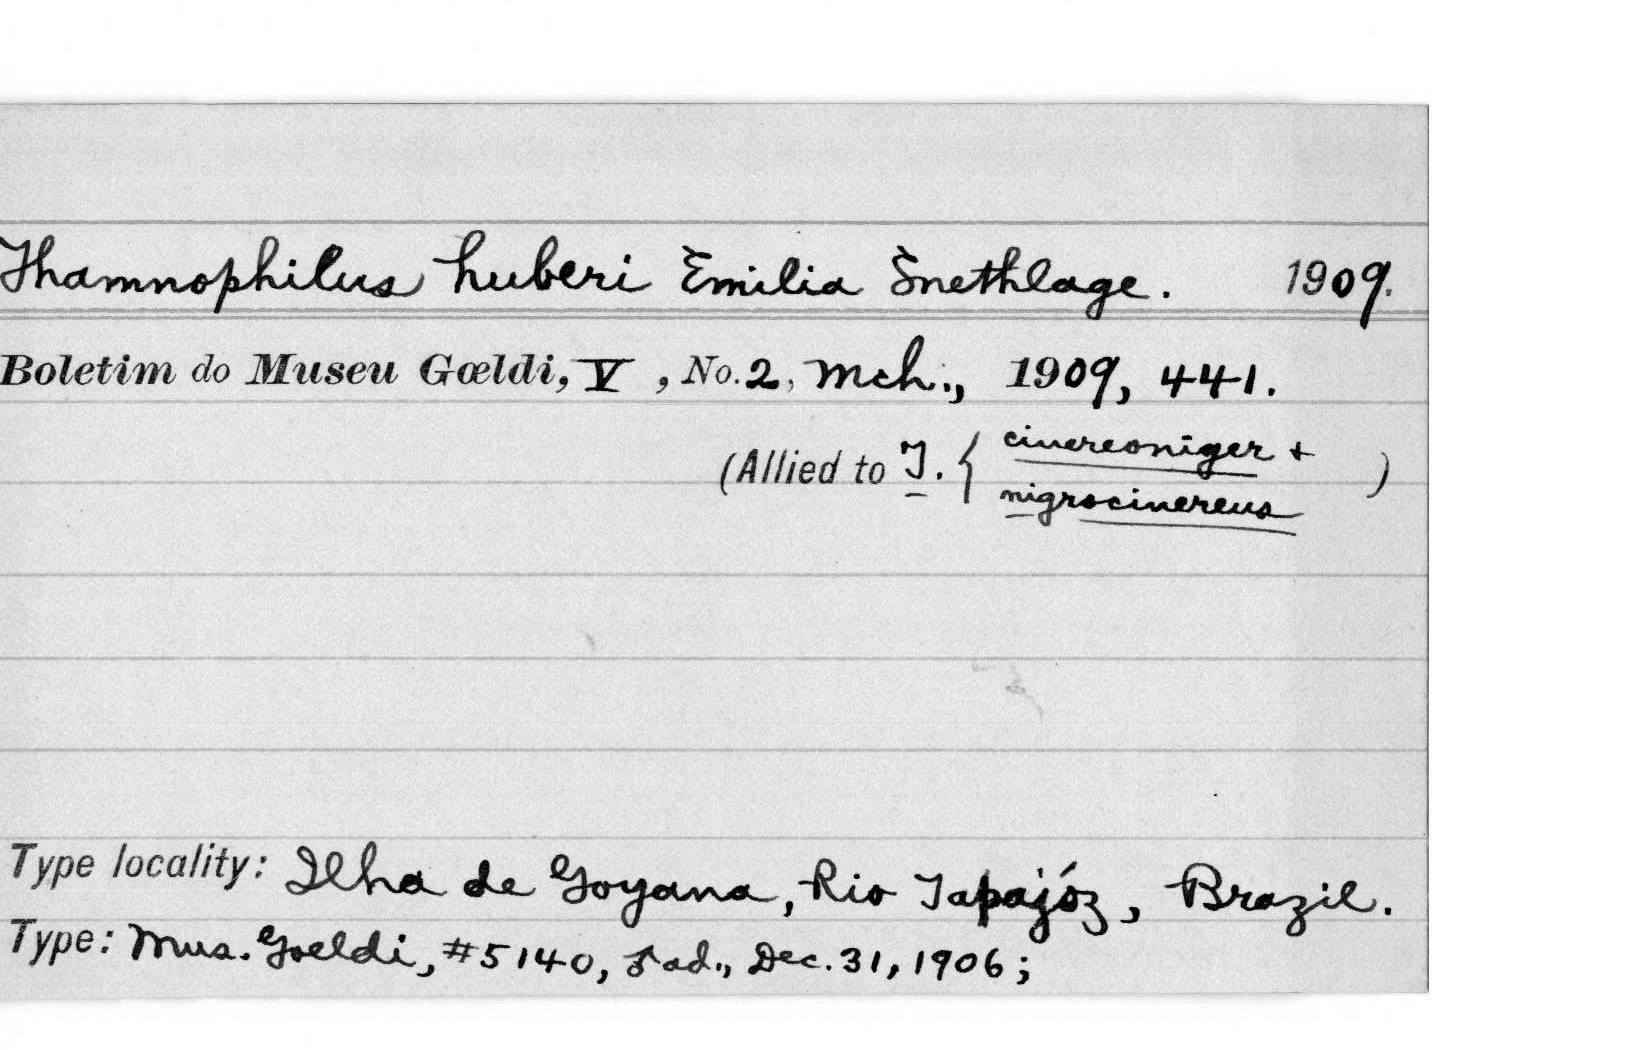 Thamnophilus huberi Emilia Snethlage. 1909.
Boletim do Museu Gœldi, V, No. 2, Mch., 1909, 441.
(Allied to T. { cinereoniger +
nigrocinereus )
Type locality: Ilha de Goyana, Rio Tapajóz, Brazil.
Type: Mus. Goeldi, #5140, ♂ ad., Dec. 31, 1906;